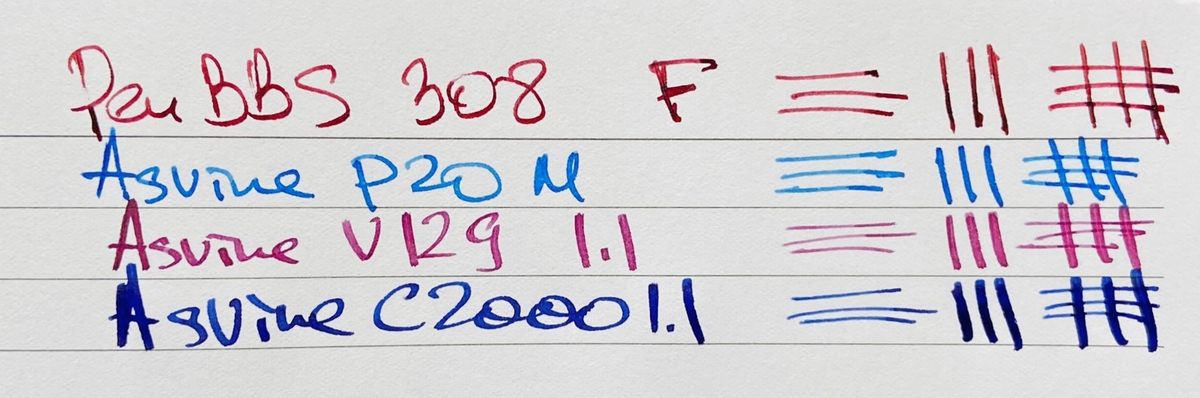 PenBBS 308 F
Asvine P20 M
Asvine V129 1.1
Asvine C2000 1.1